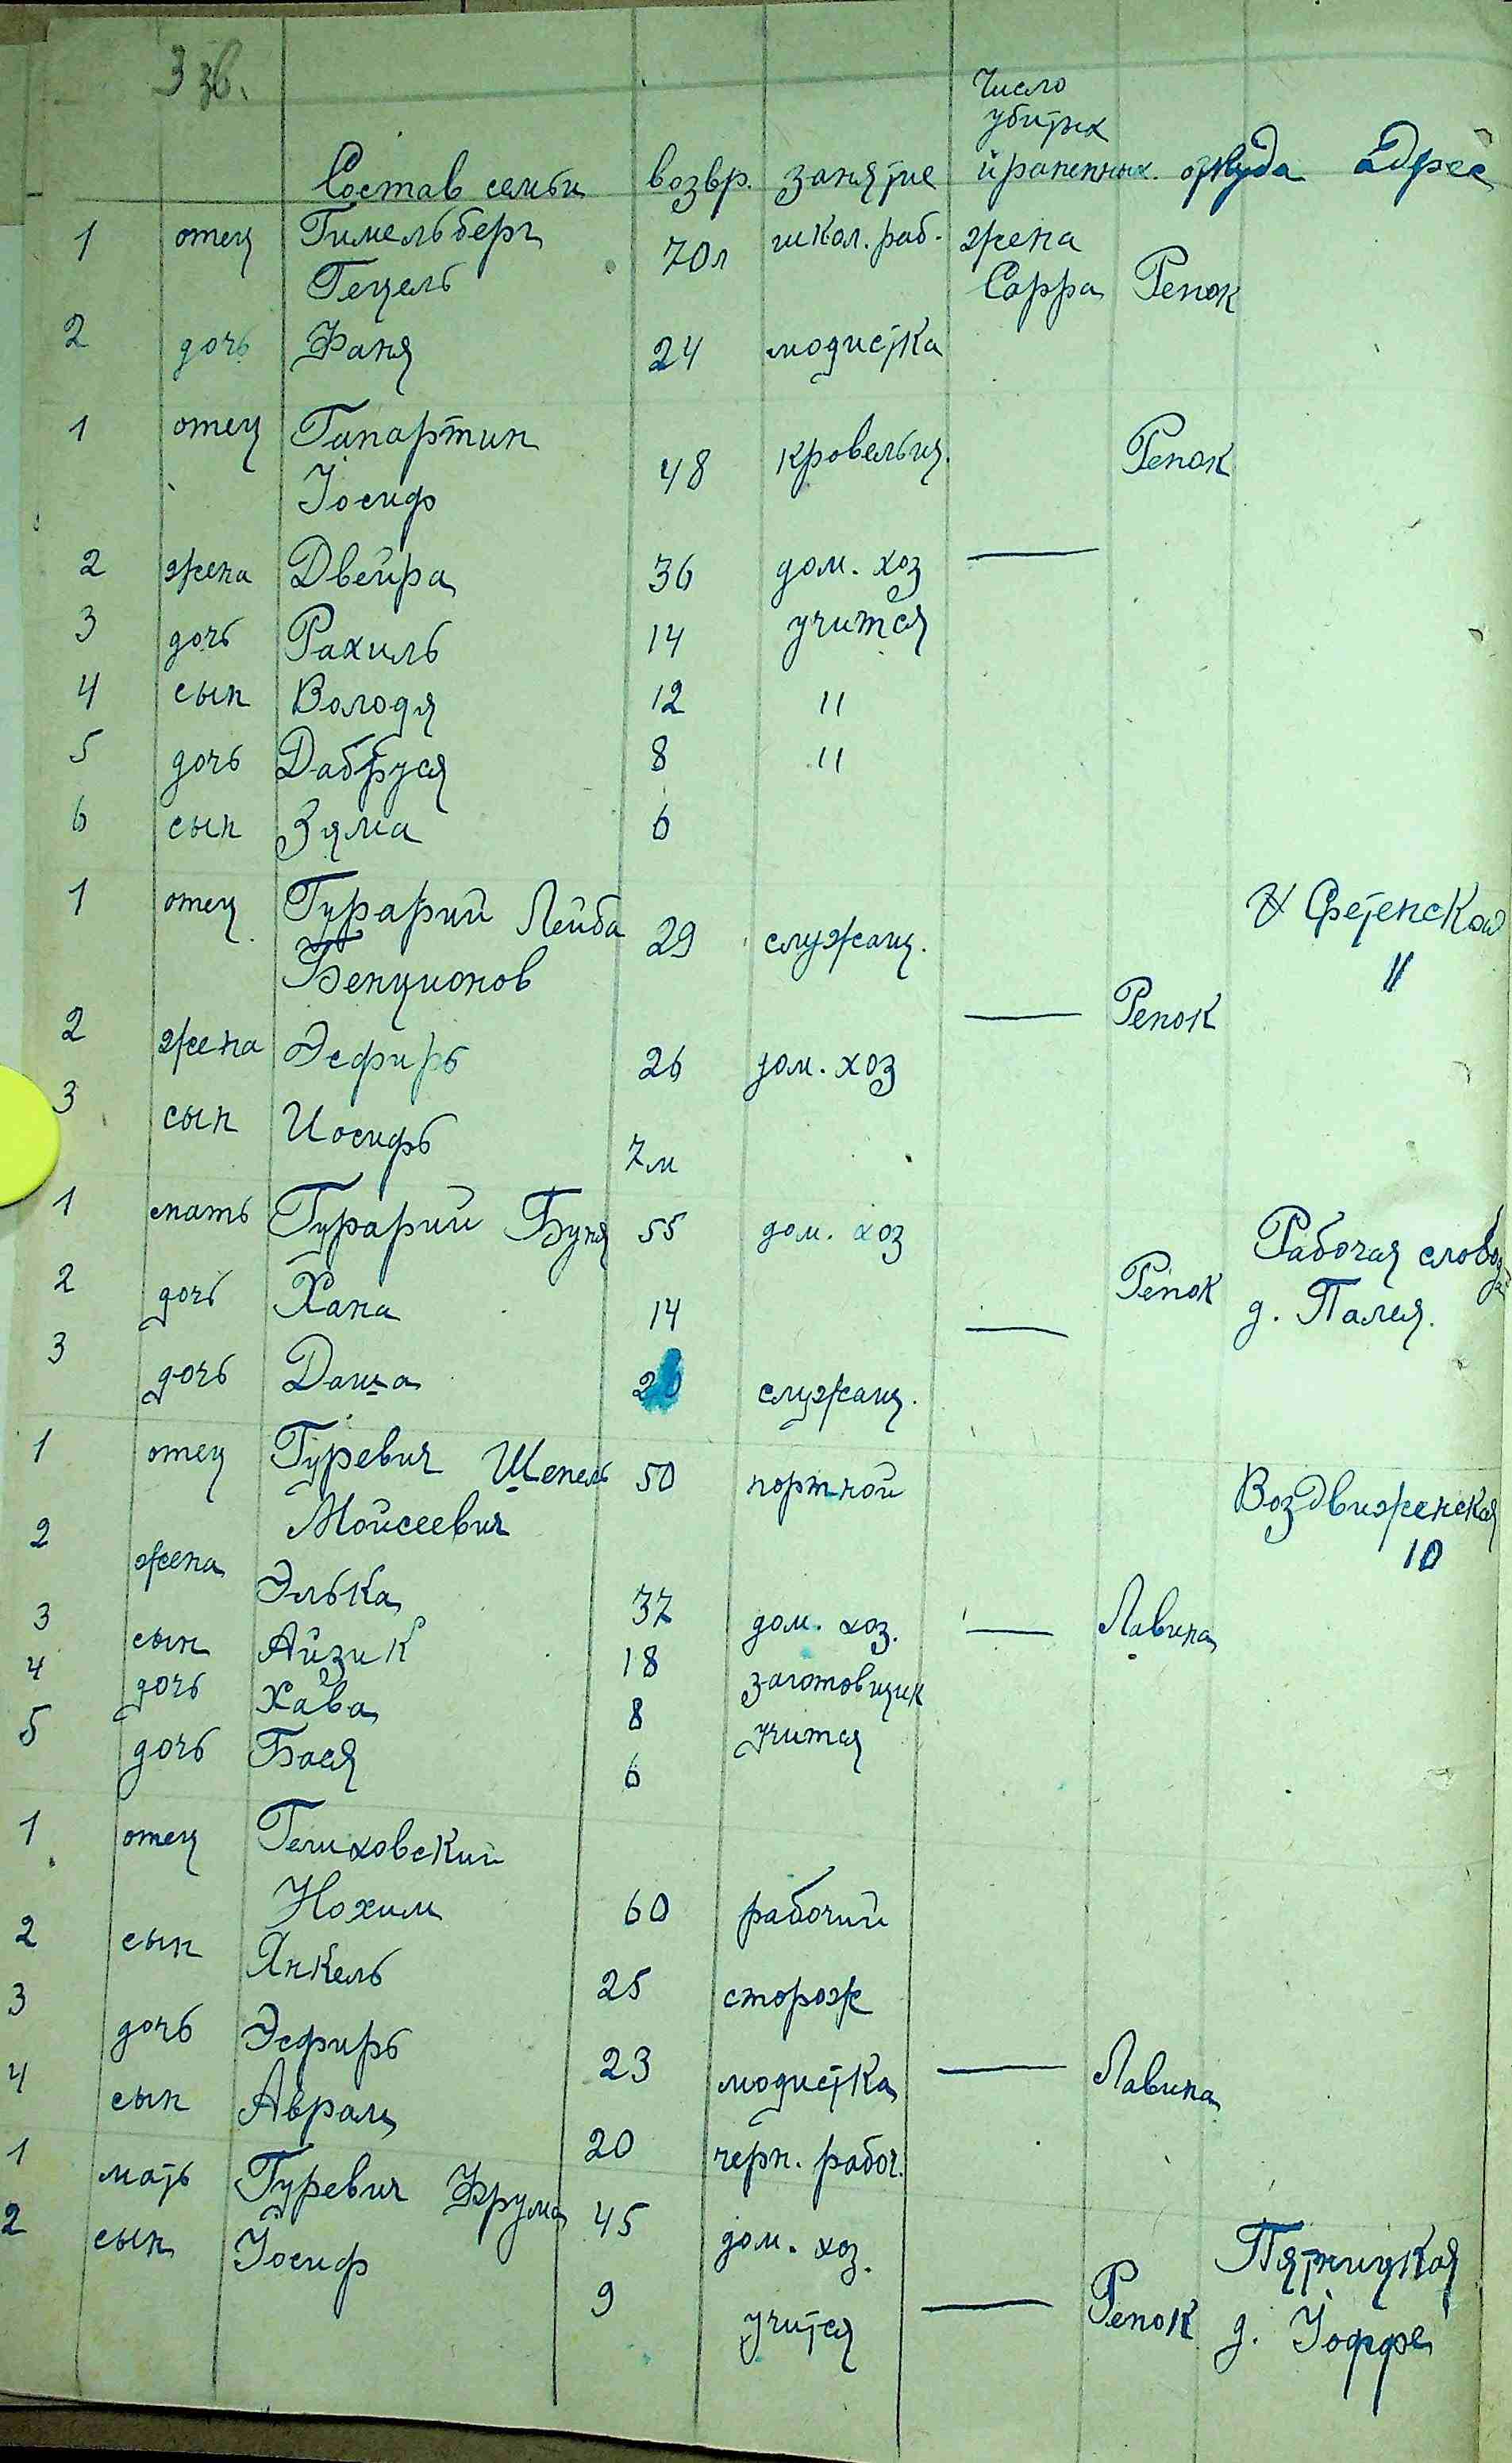 3 зв.
Число
убитых
Состав семьи возвр. занятие и раненных. откуда Адрес
1 отец Гимельберг 70л школ. раб. жена
Гецель Сарра Репок
2 дочь Фаня 24 модистка
1 отец Гапартин 48 кровельщ. Репок
Иосиф
2 жена Двейра 36 дом. хоз —
3 дочь Рахиль 14 учится
4 сын Володя 12 "
5 дочь Дабруся 8 "
6 сын Зяма 6
1 отец Гурарий Лейба 29 служащ. Сретенская
Бенционов — Репок 11
2 жена Эсфирь 26 дом. хоз
3 сын Иосифъ 7м
1 мать Гурарий Буня 55 дом. хоз Рабочая слобода
2 дочь Хана 14 — Репок д. Палея.
3 дочь Даша 20 служащ.
1 отец Гуревич Шепель 50 портной Воздвиженская
Мойсеевич 10
2 жена Элька 37 дом. хоз. — Лавина
3 сын Айзик 18 заготовщик
4 дочь Хава 8 учится
5 дочь Бася 6
1 отец Гелиховский
Нохим 60 рабочий
2 сын Янкель 25 сторож
3 дочь Эсфирь 23 модистка — Лавина
4 сын Аврам 20 черн. рабоч.
1 мать Гуревич Фрума 45 дом. хоз. Пятницкая
2 сын Иосиф 9 учится — Репок д. Иоффе